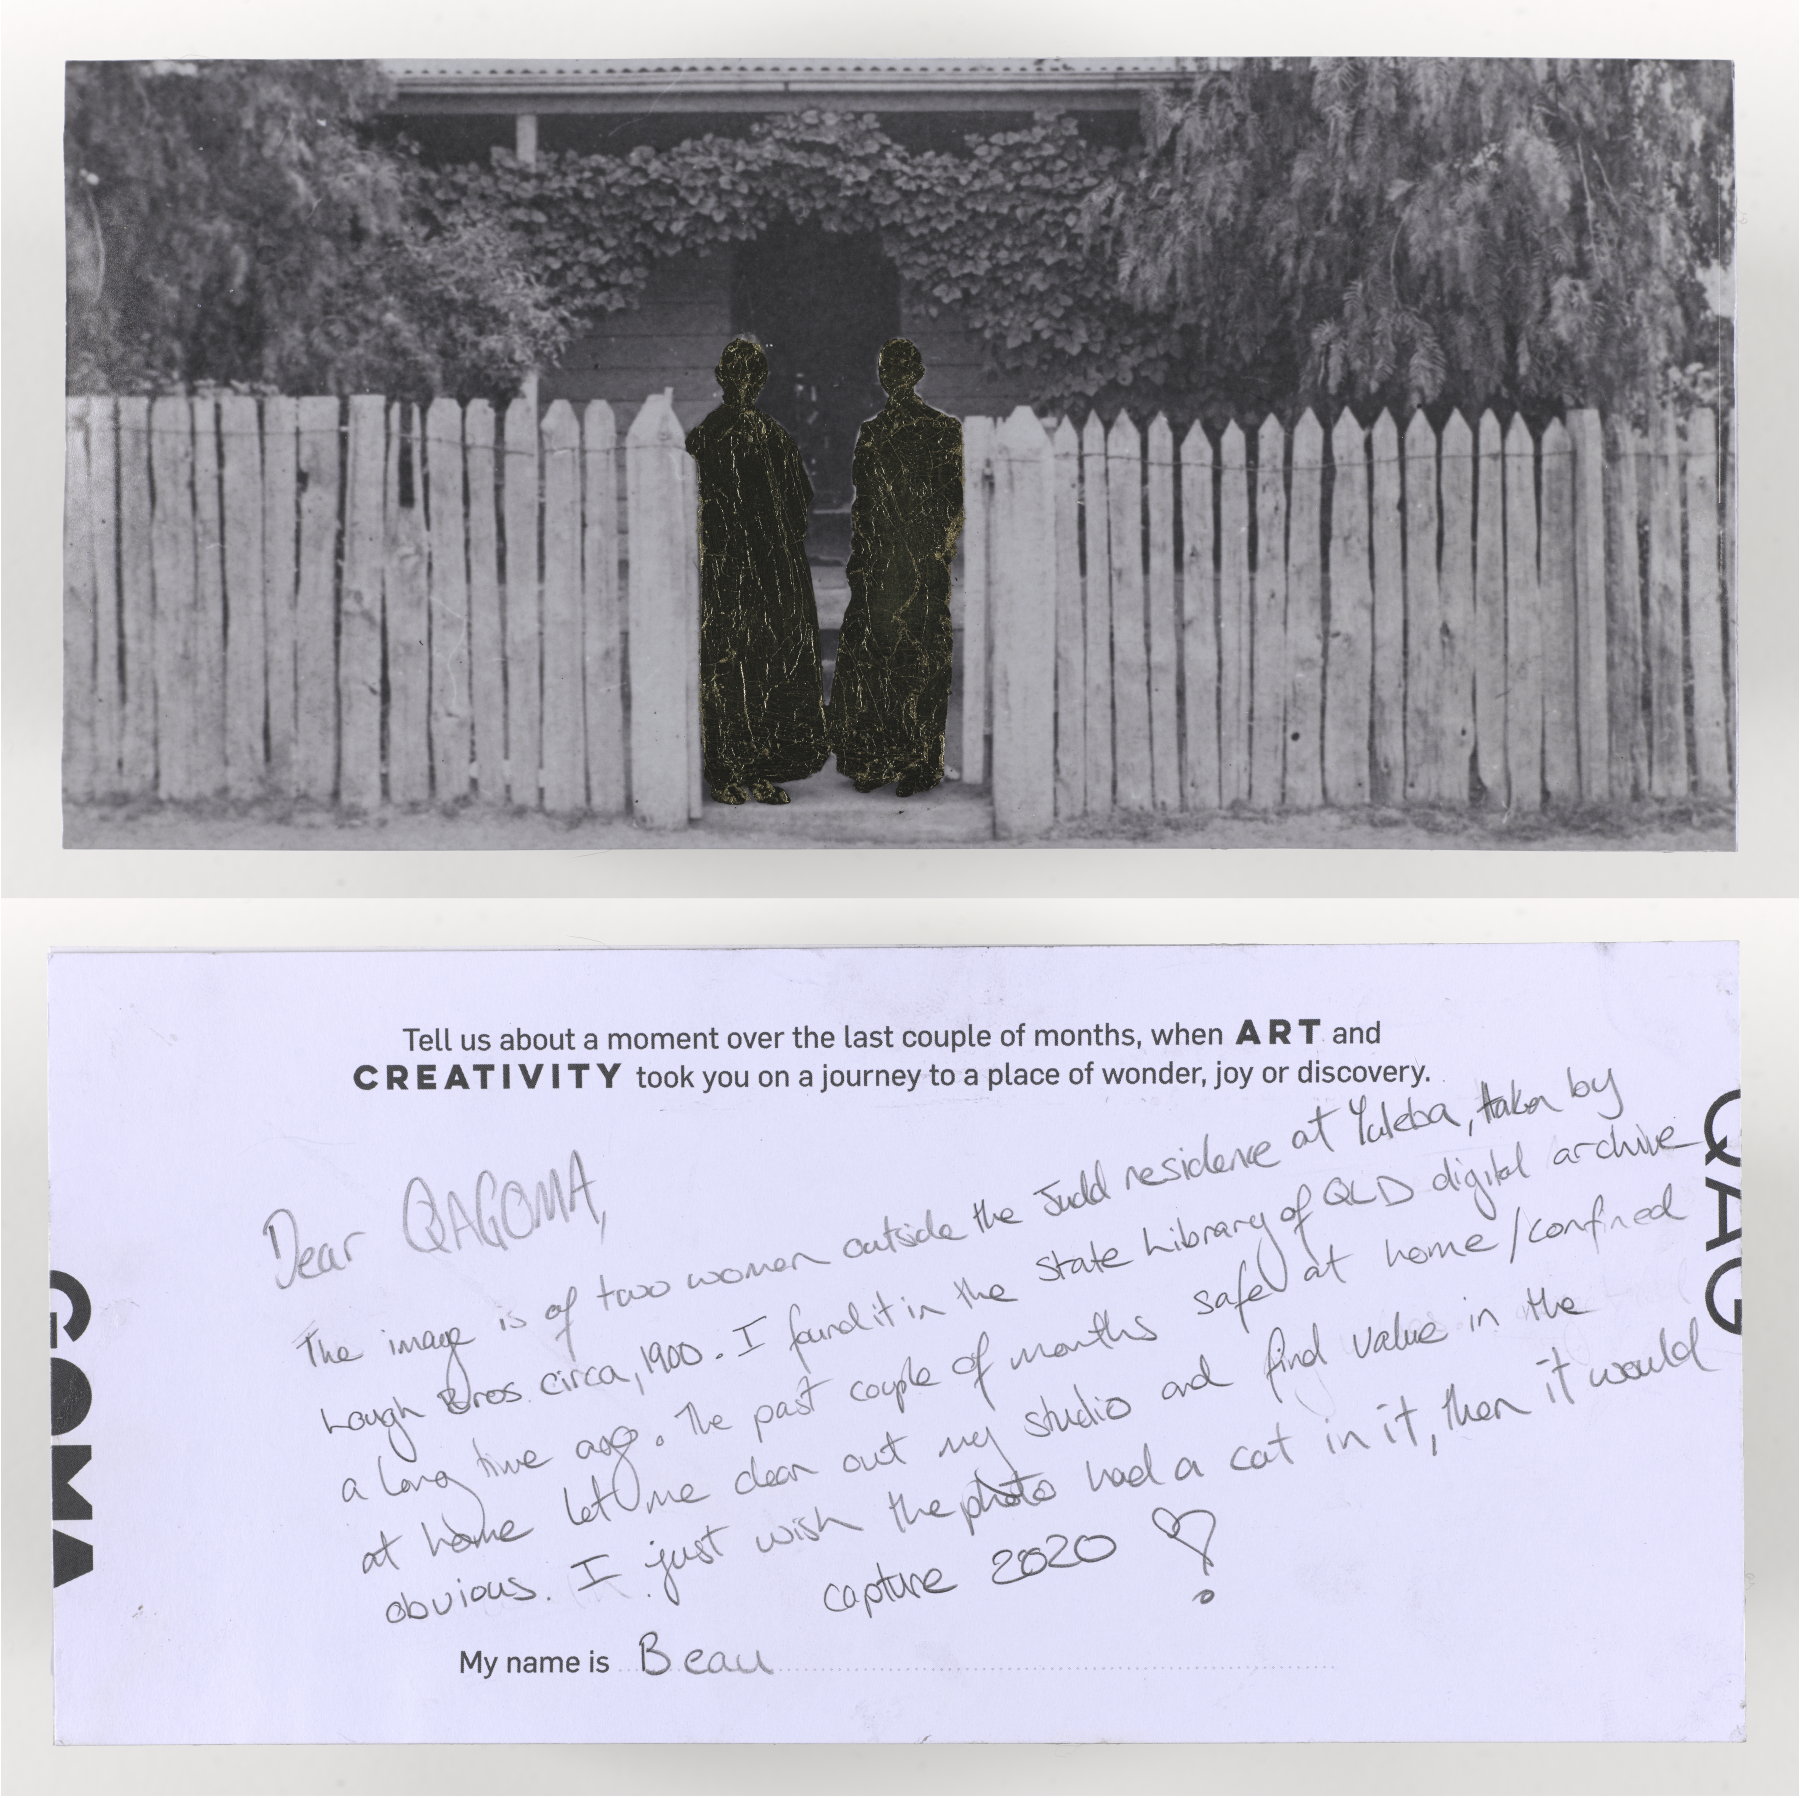 Tell us about a moment over the last couple of months, when ART and
CREATIVITY took you on a journey to a place of wonder, joy or discovery.
Dear QAGOMA,
The image is of two women outside the Judd residence at Yuleba, taken by
Lough Bros. circa, 1900. I found it in the State Library of QLD digital archive
a long time ago. The past couple of months safe at home/confined
at home let me clean out my studio and find value in the
obvious. I just wish the photo had a cat in it, then it would
capture 2020
My name is Beau
GOMA
QAG